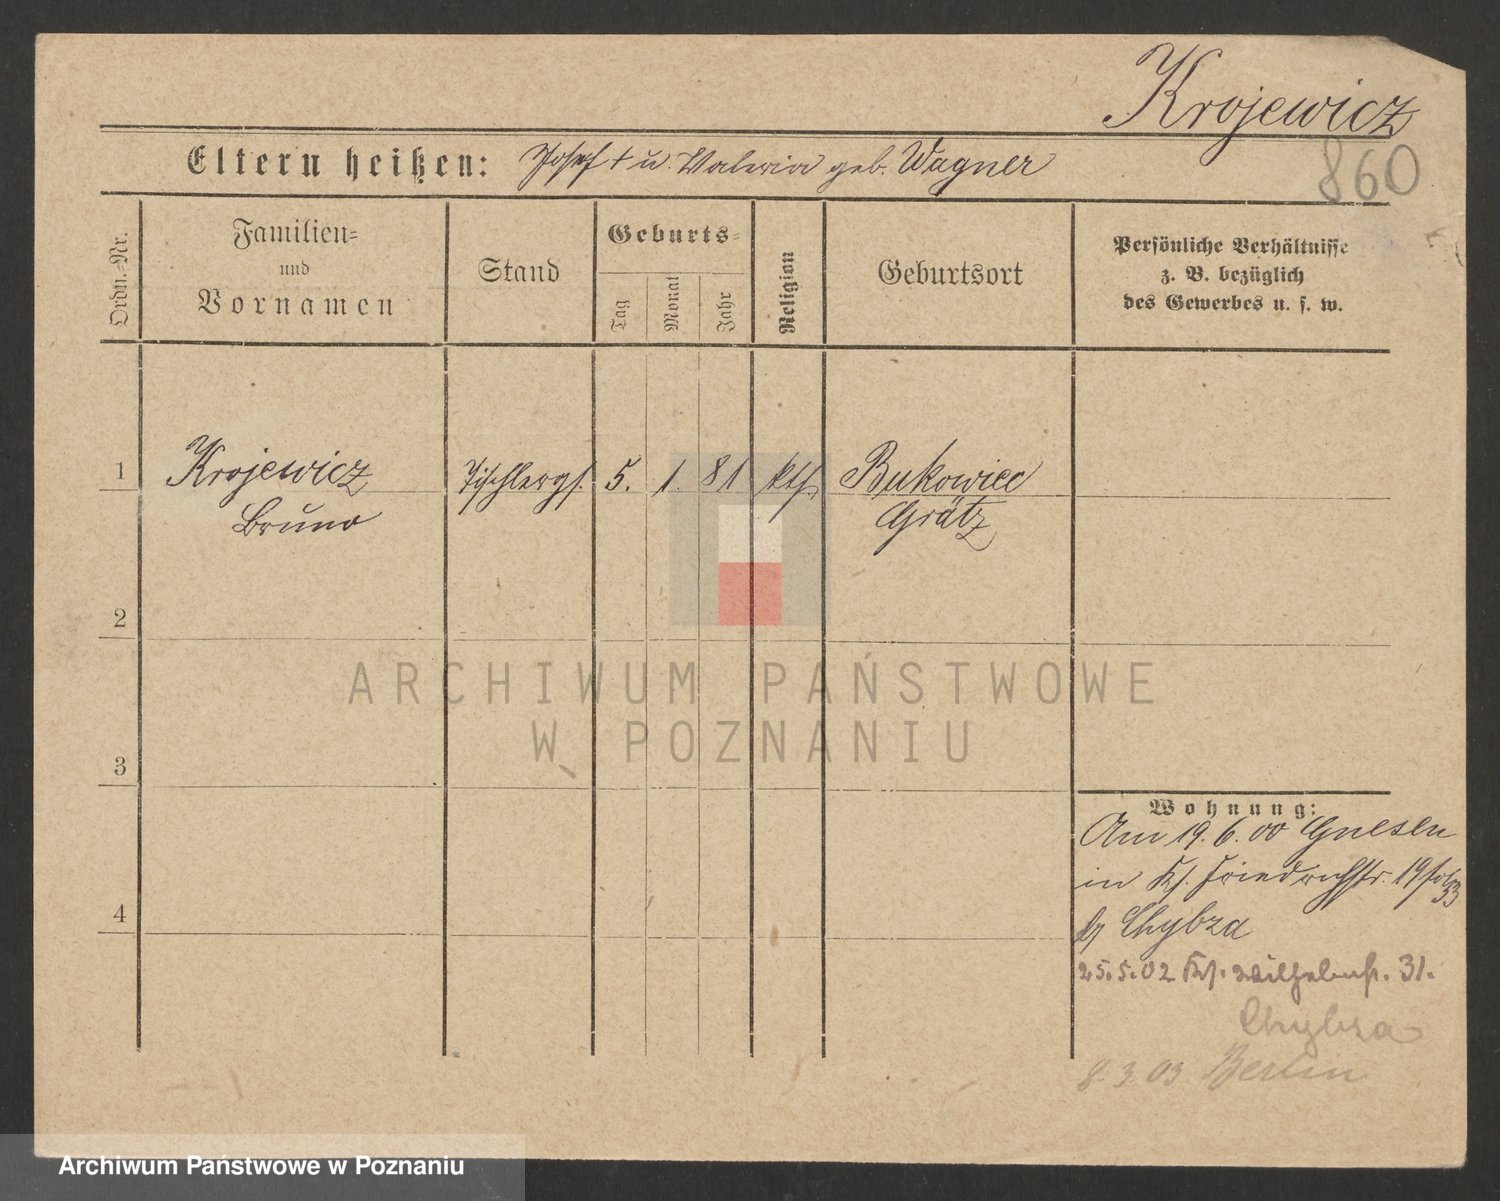 Krojewicz
860
Eltern heißen: Josef † u. Valeria geb. Wagner
Ordn.-Nr.
Familien-
und
Vornamen
Stand
Geburts-
Tag
Monat
Jahr
Religion
Geburtsort
Persönliche Verhältnisse
z. B. bezüglich
des Gewerbes u. s. w.
1 Krojewicz Tischlergs. 5. 1. 81 kth. Bukowiec
Bruno Grätz
2
ARCHIWUM PAŃSTWOWE
W POZNANIU
3
Wohnung:
Am 19.6.00 Gnesen
in Friedrichstr. 19
4
b/ Chybza
25.5.02 Wilhelmstr. 31.
Chybza
8.3.03 Berlin
Archiwum Państwowe w Poznaniu